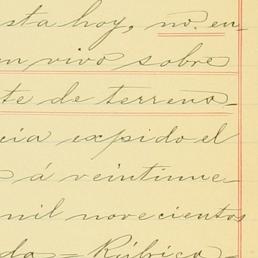 sta hoy, no. en-
n vivo sobre
te de terreno-
cia expido el
á veintinue-
mil novecientos
da = Rúbrica -